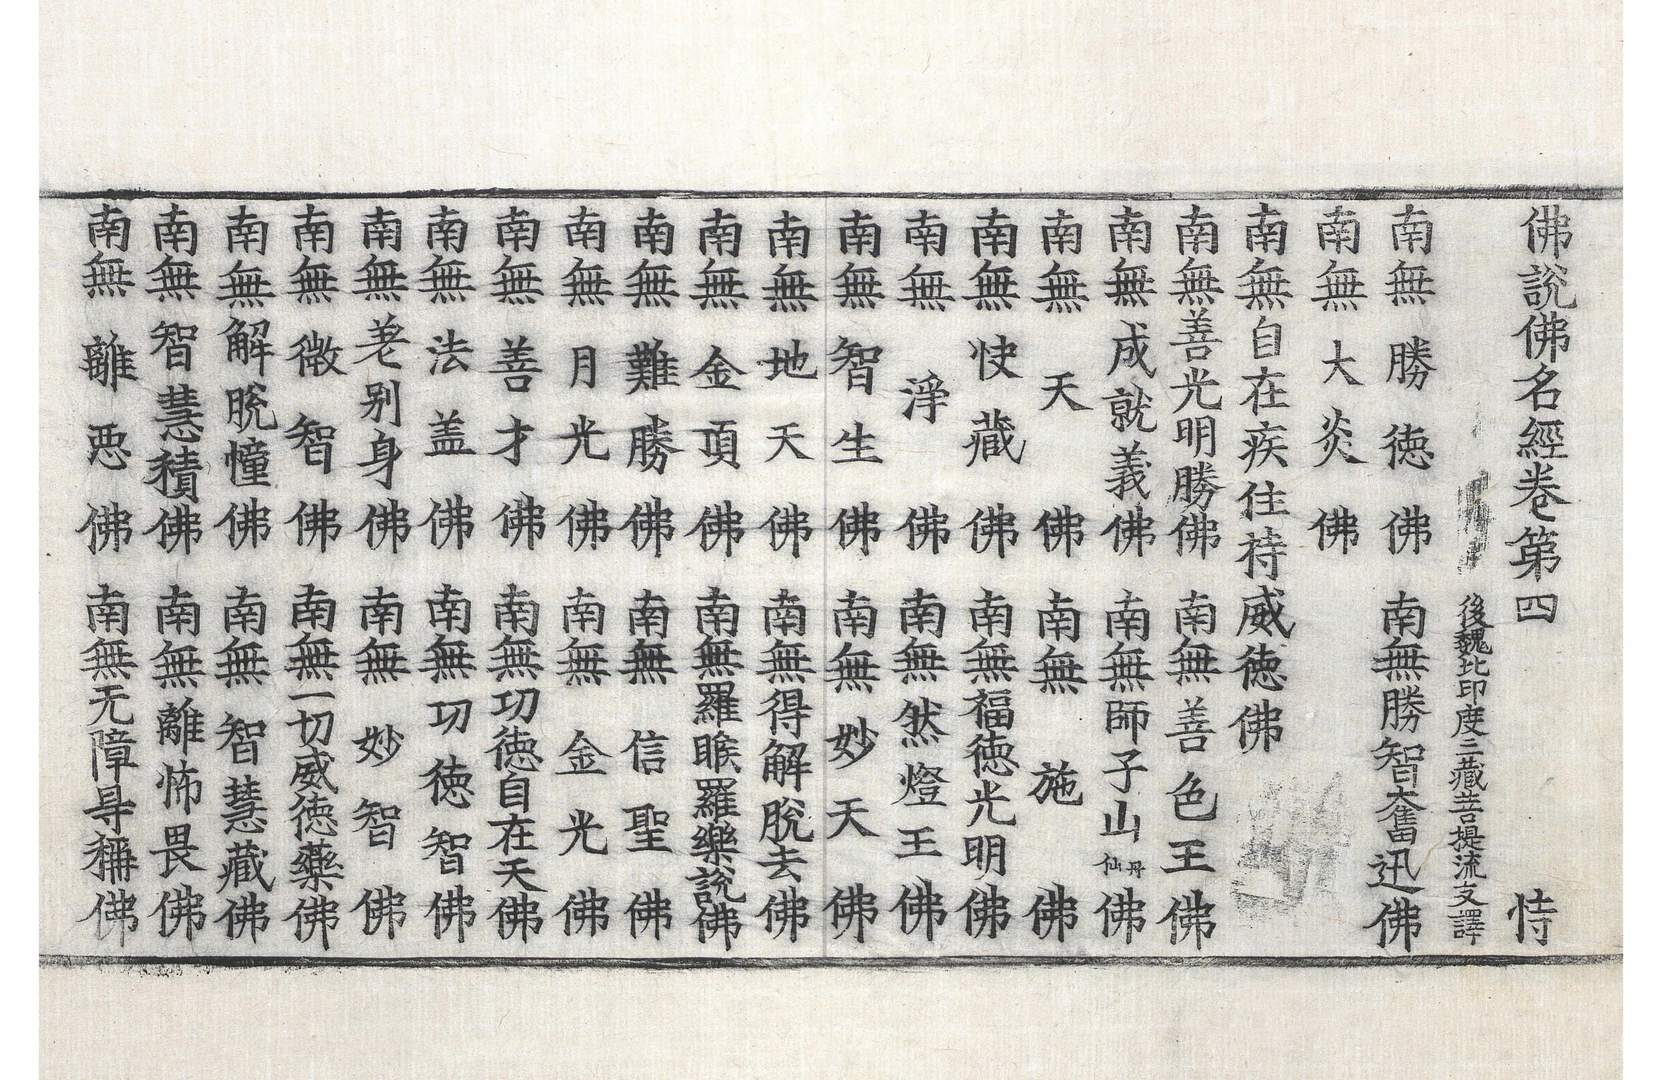 佛說佛名經卷第四 恃
後魏北印度三藏菩提流支譯
南無勝德佛 南無勝智奮迅佛
南無大炎佛
南無自在疾住持威德佛
南無善光明勝佛 南無善色王佛
南無成就義佛 南無師子山丹仙佛
南無天佛 南無施佛
南無快藏佛 南無福德光明佛
南無淨佛 南無然燈王佛
南無智生佛 南無妙天佛
南無地天佛 南無得解脫去佛
南無金頂佛 南無羅睺羅樂說佛
南無難勝佛 南無信聖佛
南無月光佛 南無金光佛
南無善才佛 南無功德自在天佛
南無法盖佛 南無功德智佛
南無差别身佛 南無妙智佛
南無微智佛 南無一切威德藥佛
南無解脫幢佛 南無智慧藏佛
南無智慧積佛 南無離怖畏佛
南無離惡佛 南無无障㝵稱佛